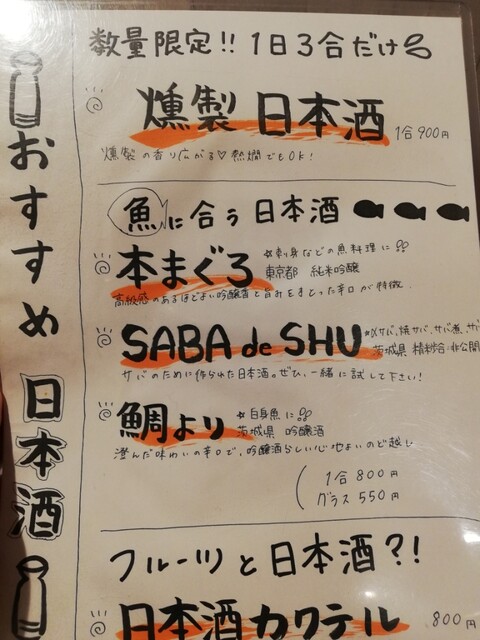 おすすめ 日本酒
数量限定!! 1日3合だけ
燻製 日本酒 1合900円
燻製の香り広がる♡熱燗でもOK!
魚に合う日本酒
本まぐろ ☆刺身などの魚料理に
東京都 純米吟醸
高級感のあるほどよい吟醸香と旨みをまとった辛口が特徴.
SABA de SHU ☆〆サバ,焼サバ,サバ煮,サバ
茨城県 精米歩合:非公開
サバのために作られた日本酒のぜひ、一緒に試して下さい!
鯛より ☆白身魚に
茨城県 吟醸酒
澄んだ味わいの辛口で、吟醸酒らしい心地よいのど越し
1合 800円
グラス 550円
フルーツと日本酒?!
日本酒カクテル 800円